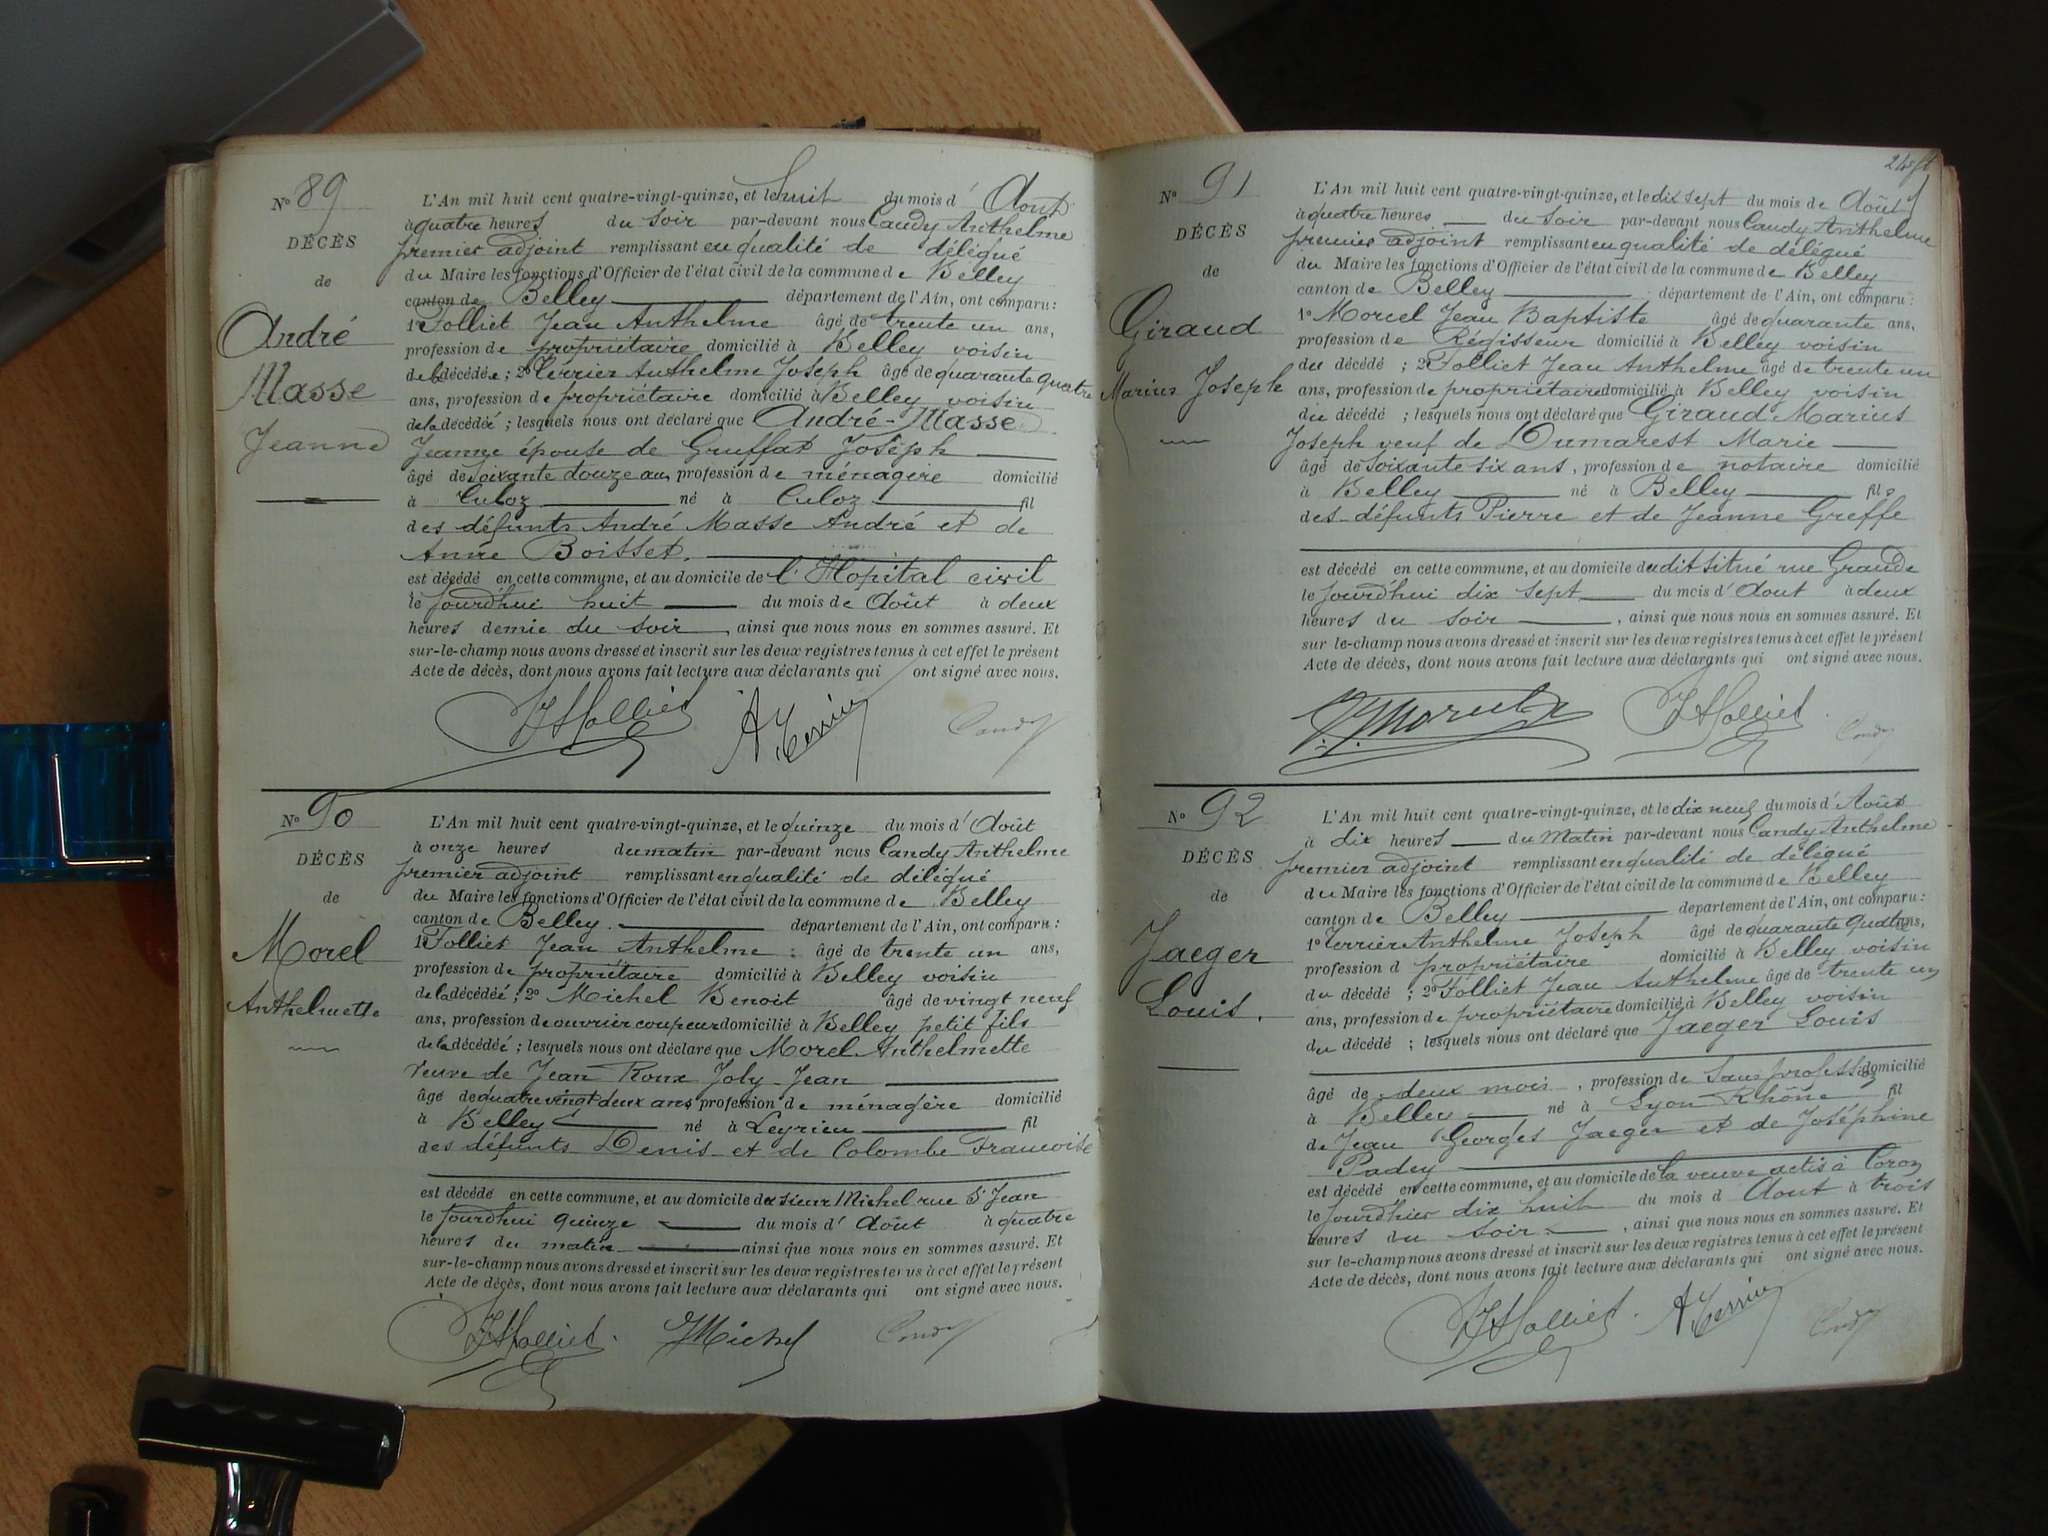 No 89
DÉCÈS
de
André
Masse
Jeanne
L'An mil huit cent quatre-vingt-quinze, et le huit du mois d' Aout
à quatre heures du soir par-devant nous Candy Anthelme
premier adjoint remplissant en qualité de délégué
du Maire les fonctions d'Officier de l'état civil de la commune de Belley
canton de Belley département de l'Ain, ont comparu :
1° Folliet Jean Anthelme âgé de trente un ans,
profession de propriétaire domicilié à Belley voisin
de la décédée ; 2° Terrier Anthelme Joseph âgé de quarante quatre
ans, profession de propriétaire domicilié à Belley voisin
de la décédée ; lesquels nous ont déclaré que André-Masse
Jeanne épouse de Gruffat Joseph
âgé de soixante douze ans, profession de ménagère domicilié
à Culoz né à Culoz fil
des défunts André Masse André et de
Anne Boisset.
est décédé en cette commune, et au domicile de l'Hopital civil
le jourd'hui huit du mois de Août à deux
heures demie du soir, ainsi que nous nous en sommes assuré. Et
sur-le-champ nous avons dressé et inscrit sur les deux registres tenus à cet effet le présent
Acte de décès, dont nous avons fait lecture aux déclarants qui ont signé avec nous.
JAFolliet A Terrier Candy
No 90
DÉCÈS
de
Morel
Anthelmette
L'An mil huit cent quatre-vingt-quinze, et le quinze du mois d' Août
à onze heures du matin par-devant nous Candy Anthelme
premier adjoint remplissant en qualité de délégué
du Maire les fonctions d'Officier de l'état civil de la commune de Belley
canton de Belley. département de l'Ain, ont comparu :
1° Folliet Jean Anthelme : âgé de trente un ans,
profession de propriétaire domicilié à Belley voisin
de la décédée ; 2° Michel Benoit âgé de vingt neuf
ans, profession de ouvrier coupeur domicilié à Belley petit fils
de la décédée ; lesquels nous ont déclaré que Morel Anthelmette
veuve de Jean Roux Joly Jean
âgé de quatre vingt deux ans, profession de ménagère domicilié
à Belley né à Leyrieu fil
des défunts Denis et de Colombe Francoise
est décédé en cette commune, et au domicile du sieur Michel rue St Jean
le jourd'hui quinze du mois d' Août à quatre
heures du matin ainsi que nous nous en sommes assuré. Et
sur-le-champ nous avons dressé et inscrit sur les deux registres tenus à cet effet le présent
Acte de décès, dont nous avons fait lecture aux déclarants qui ont signé avec nous.
JAFolliet Michel Candy
No 91
DÉCÈS
de
Giraud
Marius Joseph
L'An mil huit cent quatre-vingt-quinze, et le dix sept du mois de Août
à quatre heures du soir par-devant nous Candy Anthelme
premier adjoint remplissant en qualité de délégué
du Maire les fonctions d'Officier de l'état civil de la commune de Belley
canton de Belley département de l'Ain, ont comparu :
1° Morcel Jean Baptiste âgé de quarante ans,
profession de Régisseur domicilié à Belley voisin
du décédé ; 2° Folliet Jean Anthelme âgé de trente un
ans, profession de propriétaire domicilié à Belley voisin
du décédé ; lesquels nous ont déclaré que Giraud Marius
Joseph veuf de Dumarest Marie
âgé de soixante six ans, profession de notaire domicilié
à Belley né à Belley fils
des défunts Pierre et de Jeanne Greffe
est décédé en cette commune, et au domicile dudit situé rue Grande
le jourd'hui dix sept du mois d' Aout à deux
heures du soir, ainsi que nous nous en sommes assuré. Et
sur-le-champ nous avons dressé et inscrit sur les deux registres tenus à cet effet le présent
Acte de décès, dont nous avons fait lecture aux déclarants qui ont signé avec nous.
JAFolliet Candy
No 92
DÉCÈS
de
Jaeger
Louis.
L'An mil huit cent quatre-vingt-quinze, et le dix neuf du mois d' Août
à dix heures du matin par-devant nous Candy Anthelme
premier adjoint remplissant en qualité de délégué
du Maire les fonctions d'Officier de l'état civil de la commune de Belley
canton de Belley département de l'Ain, ont comparu :
1° Terrier Anthelme Joseph âgé de quarante quatre ans,
profession d propriétaire domicilié à Belley voisin
du décédé ; 2° Folliet Jean Anthelme âgé de trente un
ans, profession de propriétaire domicilié à Belley voisin
du décédé ; lesquels nous ont déclaré que Jaeger Louis
âgé de deux mois, profession de sans profession domicilié
à Belley né à Lyon Rhône fil
de Jean Georges Jaeger et de Joséphine
Padey
est décédé en cette commune, et au domicile de la veuve actis à Coron
le jourd'hier dix huit du mois d Aout à trois
heures du soir, ainsi que nous nous en sommes assuré. Et
sur-le-champ nous avons dressé et inscrit sur les deux registres tenus à cet effet le présent
Acte de décès, dont nous avons fait lecture aux déclarants qui ont signé avec nous.
JAFolliet A Terrier Candy